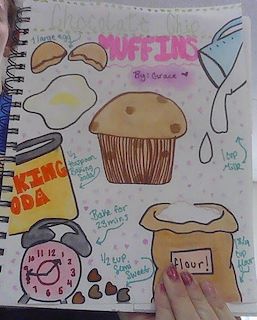 Chocolate Chip
MUFFINS
By: Grace ♥
1 large egg
1 cup
Milk
KING
ODA
1/2
teaspoon
Baking
Soda
Bake for
23 mins
1/2 cup
Semi
Sweets
flour!
cup
flour